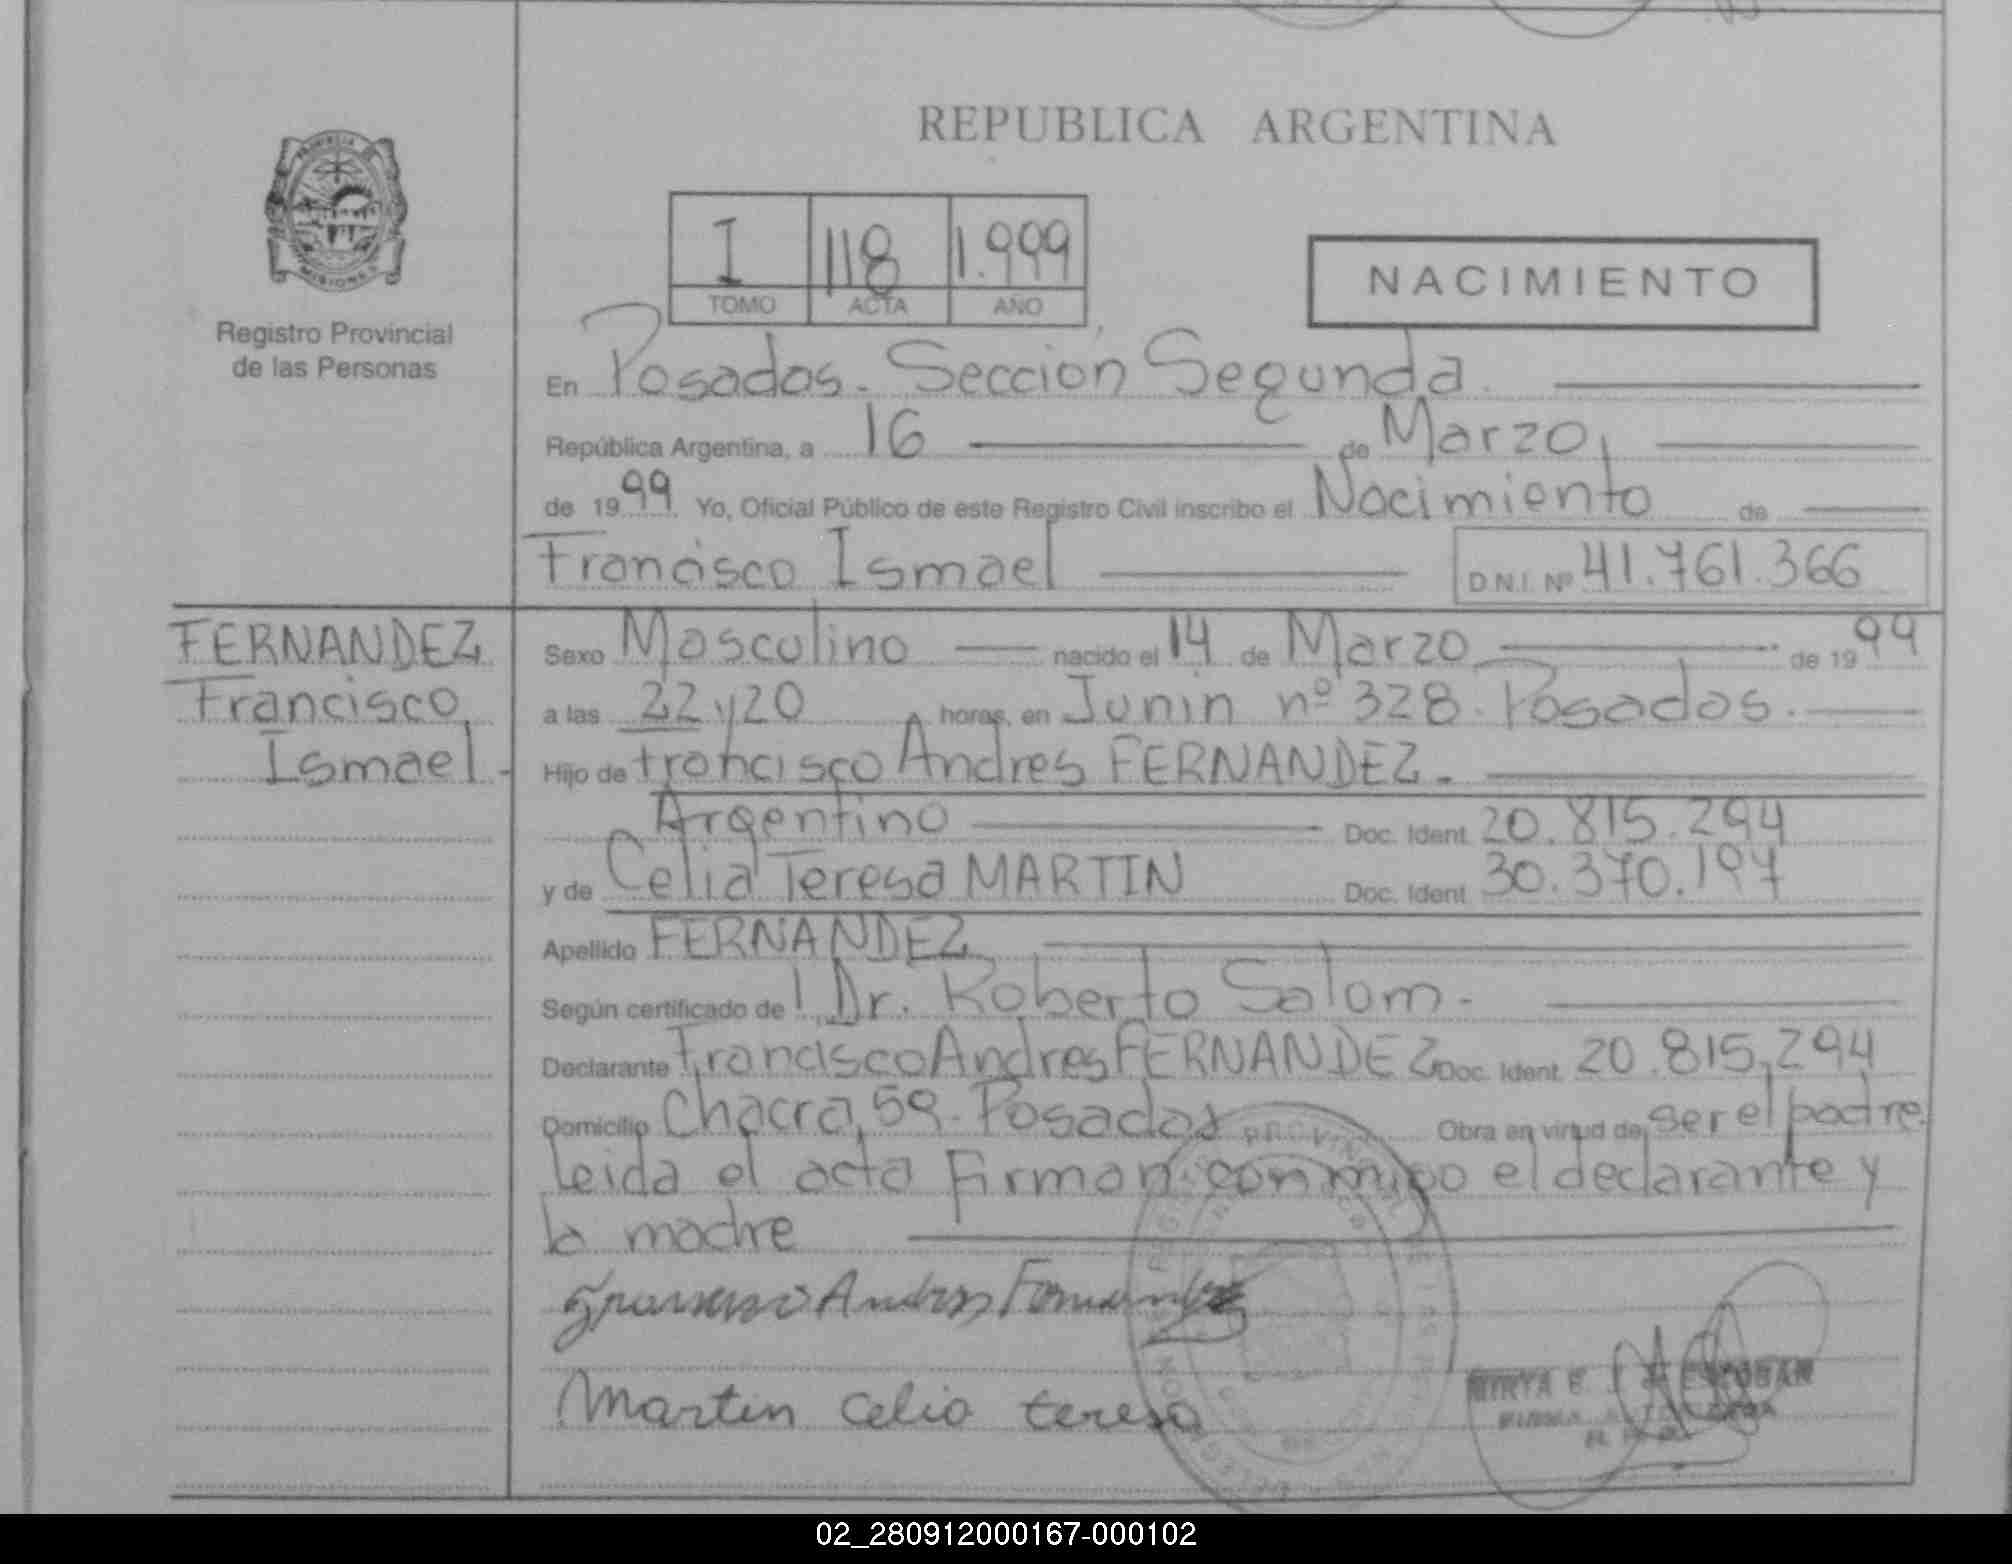 REPUBLICA ARGENTINA
PROVINCIA
MISIONES
I 118 1.999
TOMO ACTA AÑO
NACIMIENTO
Registro Provincial
de las Personas
En Posadas. Sección Segunda.
República Argentina, a 16 de Marzo,
de 1999 Yo, Oficial Público de este Registro Civil inscribo el Nacimiento de
Francisco Ismael D.N.I. Nº 41.761.366
FERNANDEZ
Francisco
Ismael.-
Sexo Masculino nacido el 14 de Marzo de 1999
a las 22 y 20 horas, en Junin nº 328. Posadas.
Hijo de Francisco Andres FERNANDEZ.
Argentino Doc. Ident. 20.815.294
y de Celia Teresa MARTIN Doc. Ident. 30.370.197
Apellido FERNANDEZ
Según certificado de Dr. Roberto Salom.-
Declarante Francisco Andres FERNANDEZ Doc. Ident. 20.815.294
Domicilio Chacra 59. Posadas Obra en virtud de ser el padre
leida el acta Firman conmigo el declarante y
la madre
Francisco Andres Fernandez
Martin Celia teresa
MIRYA E. ESCOBAR
02_280912000167-000102